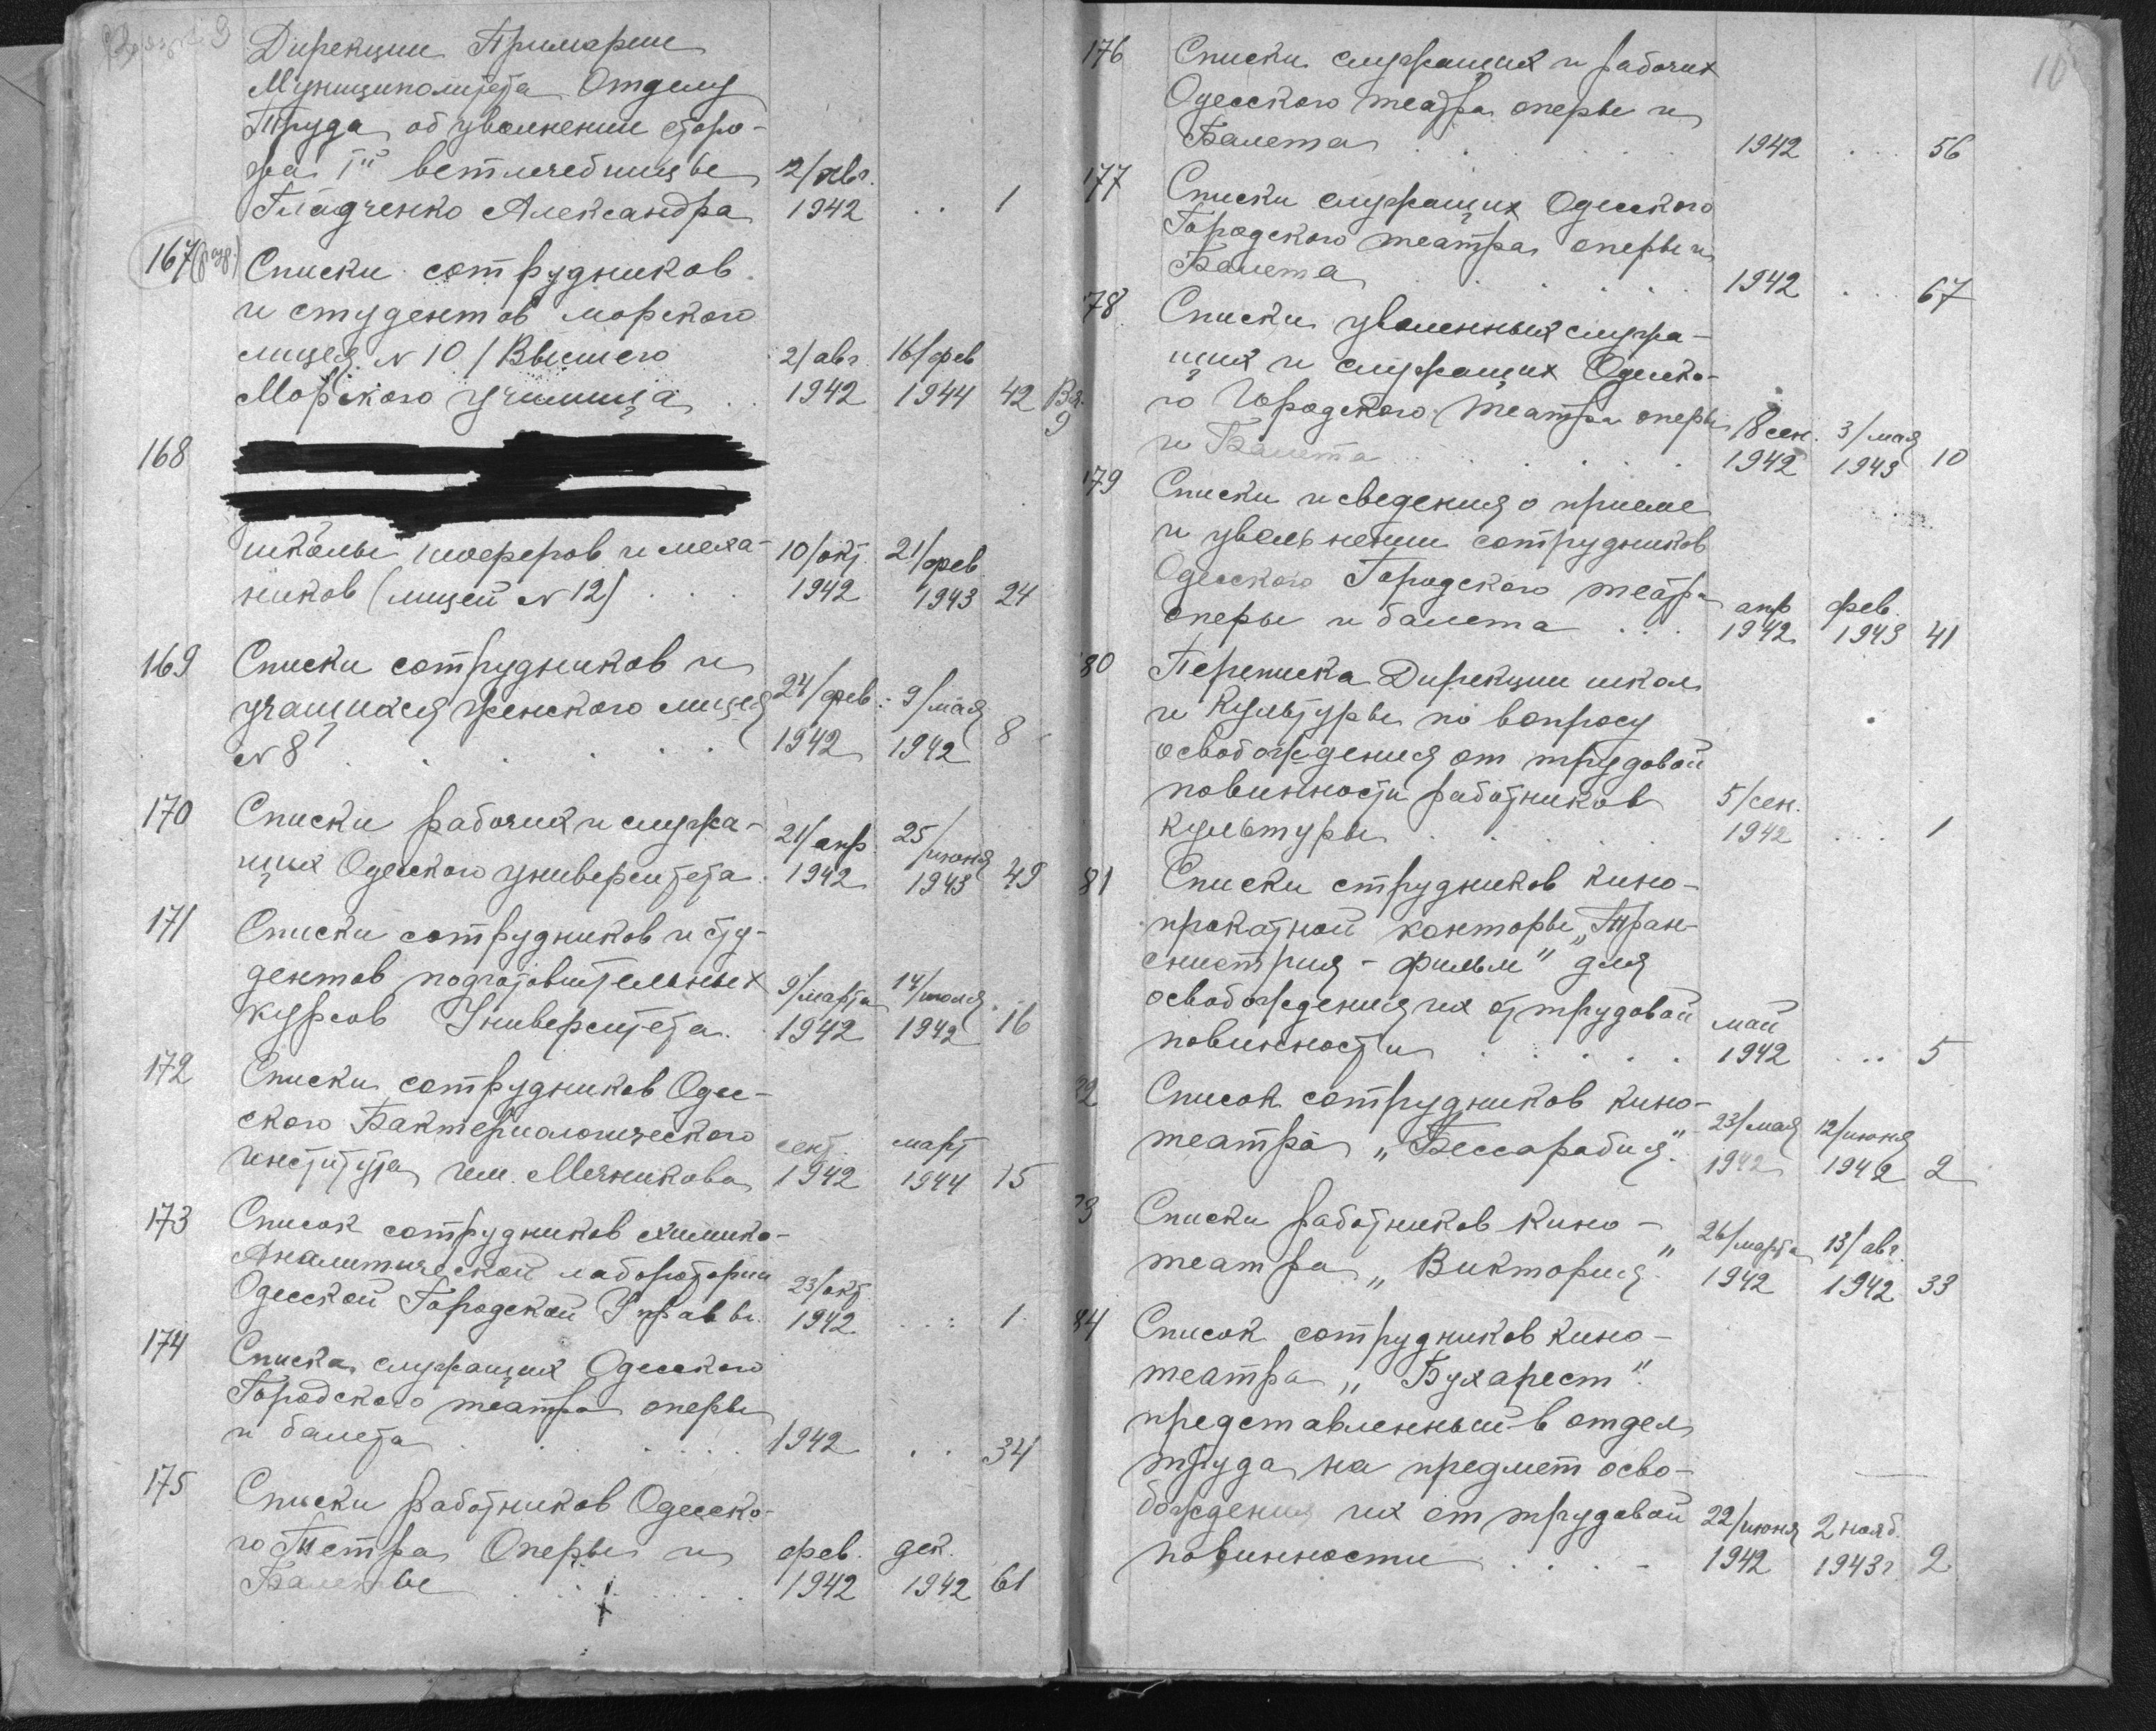 Дирекции Примарии
Муниципалитета Отделу
Труда об уволнении сторо-
жа Iй ветлечебницы 2/авг.
Гладченко Александра 1942 . . 1
167 Списки сотрудников
и студентов морского
лицея N 10 / Высшего 2/авг. 16/фев
Морского училища . . 1942 1944 42
9
168
школы шоферов и меха- 10/окт. 21/фев
ников (лицей N 12) . . . 1942 1943 24
169 Списки сотрудников и
учащихся женского лицея 24/фев. 9/мая
N 8 . . . . . 1942 1942 8
170 Списки рабочих и служа- 21/апр. 25/июня
щих Одесского университета. 1942 1943 49
171 Списки сотрудников и сту-
дентов подготовительных 9/марта 14/июля
курсов Университета. 1942 1942 16
172 Списки сотрудников Одес-
ского Бактериологического сент. март
института им. Мечникова 1942 1944 15
173 Список сотрудников химико-
Аналитической лаборатории 23/окт.
Одесской Городской Управы. 1942 . . . 1
174 Списка служащих Одесского
Городского театра оперы
и балета . . . . . 1942 . . 34
175 Списки работников Одесско-
го Тетра Оперы и фев. дек.
Балеты . . . . . 1942 1942 61
10
176 Списки служащих и рабочих
Одесского театра оперы и
Балета . . . . . 1942 . . . 56
177 Списки служащих Одесского
Городского театра оперы и
Балета . . . . . 1942 . . . 67
78 Списки уволенных служа-
щих и служащих Одесско-
го Городского театра оперы 18 сен. 3/мая
и Балета . . . . . 1942 1943 10
179 Списки и сведения о приеме
и увольнении сотрудников
Одесского Городского театра апр фев.
оперы и балета . . . 1942 1943 41
80 Переписка Дирекции школ
и Культуры по вопросу
освобождения от трудовой
повинности работников 5/сен.
культуры . . . . . 1942 . . . 1
81 Списки струдников кино-
прокатной конторы „Тран-
снистрия - фильм" для
освобождения их от трудовой май
повинности . . . . . 1942 . . . 5
2 Список сотрудников кино- 23/мая 12/июня
театра „Бессарабия". 1942 1942 2
3 Списки работников Кино- 26/марта 13/авг.
театра „Виктория". 1942 1942 33
84 Список сотрудников кино-
театра „Бухарест".
представленный в отдел
труда на предмет осво-
бождения их от трудовой 22/июня 2 нояб.
повинности . . . - 1942 1943г. 2